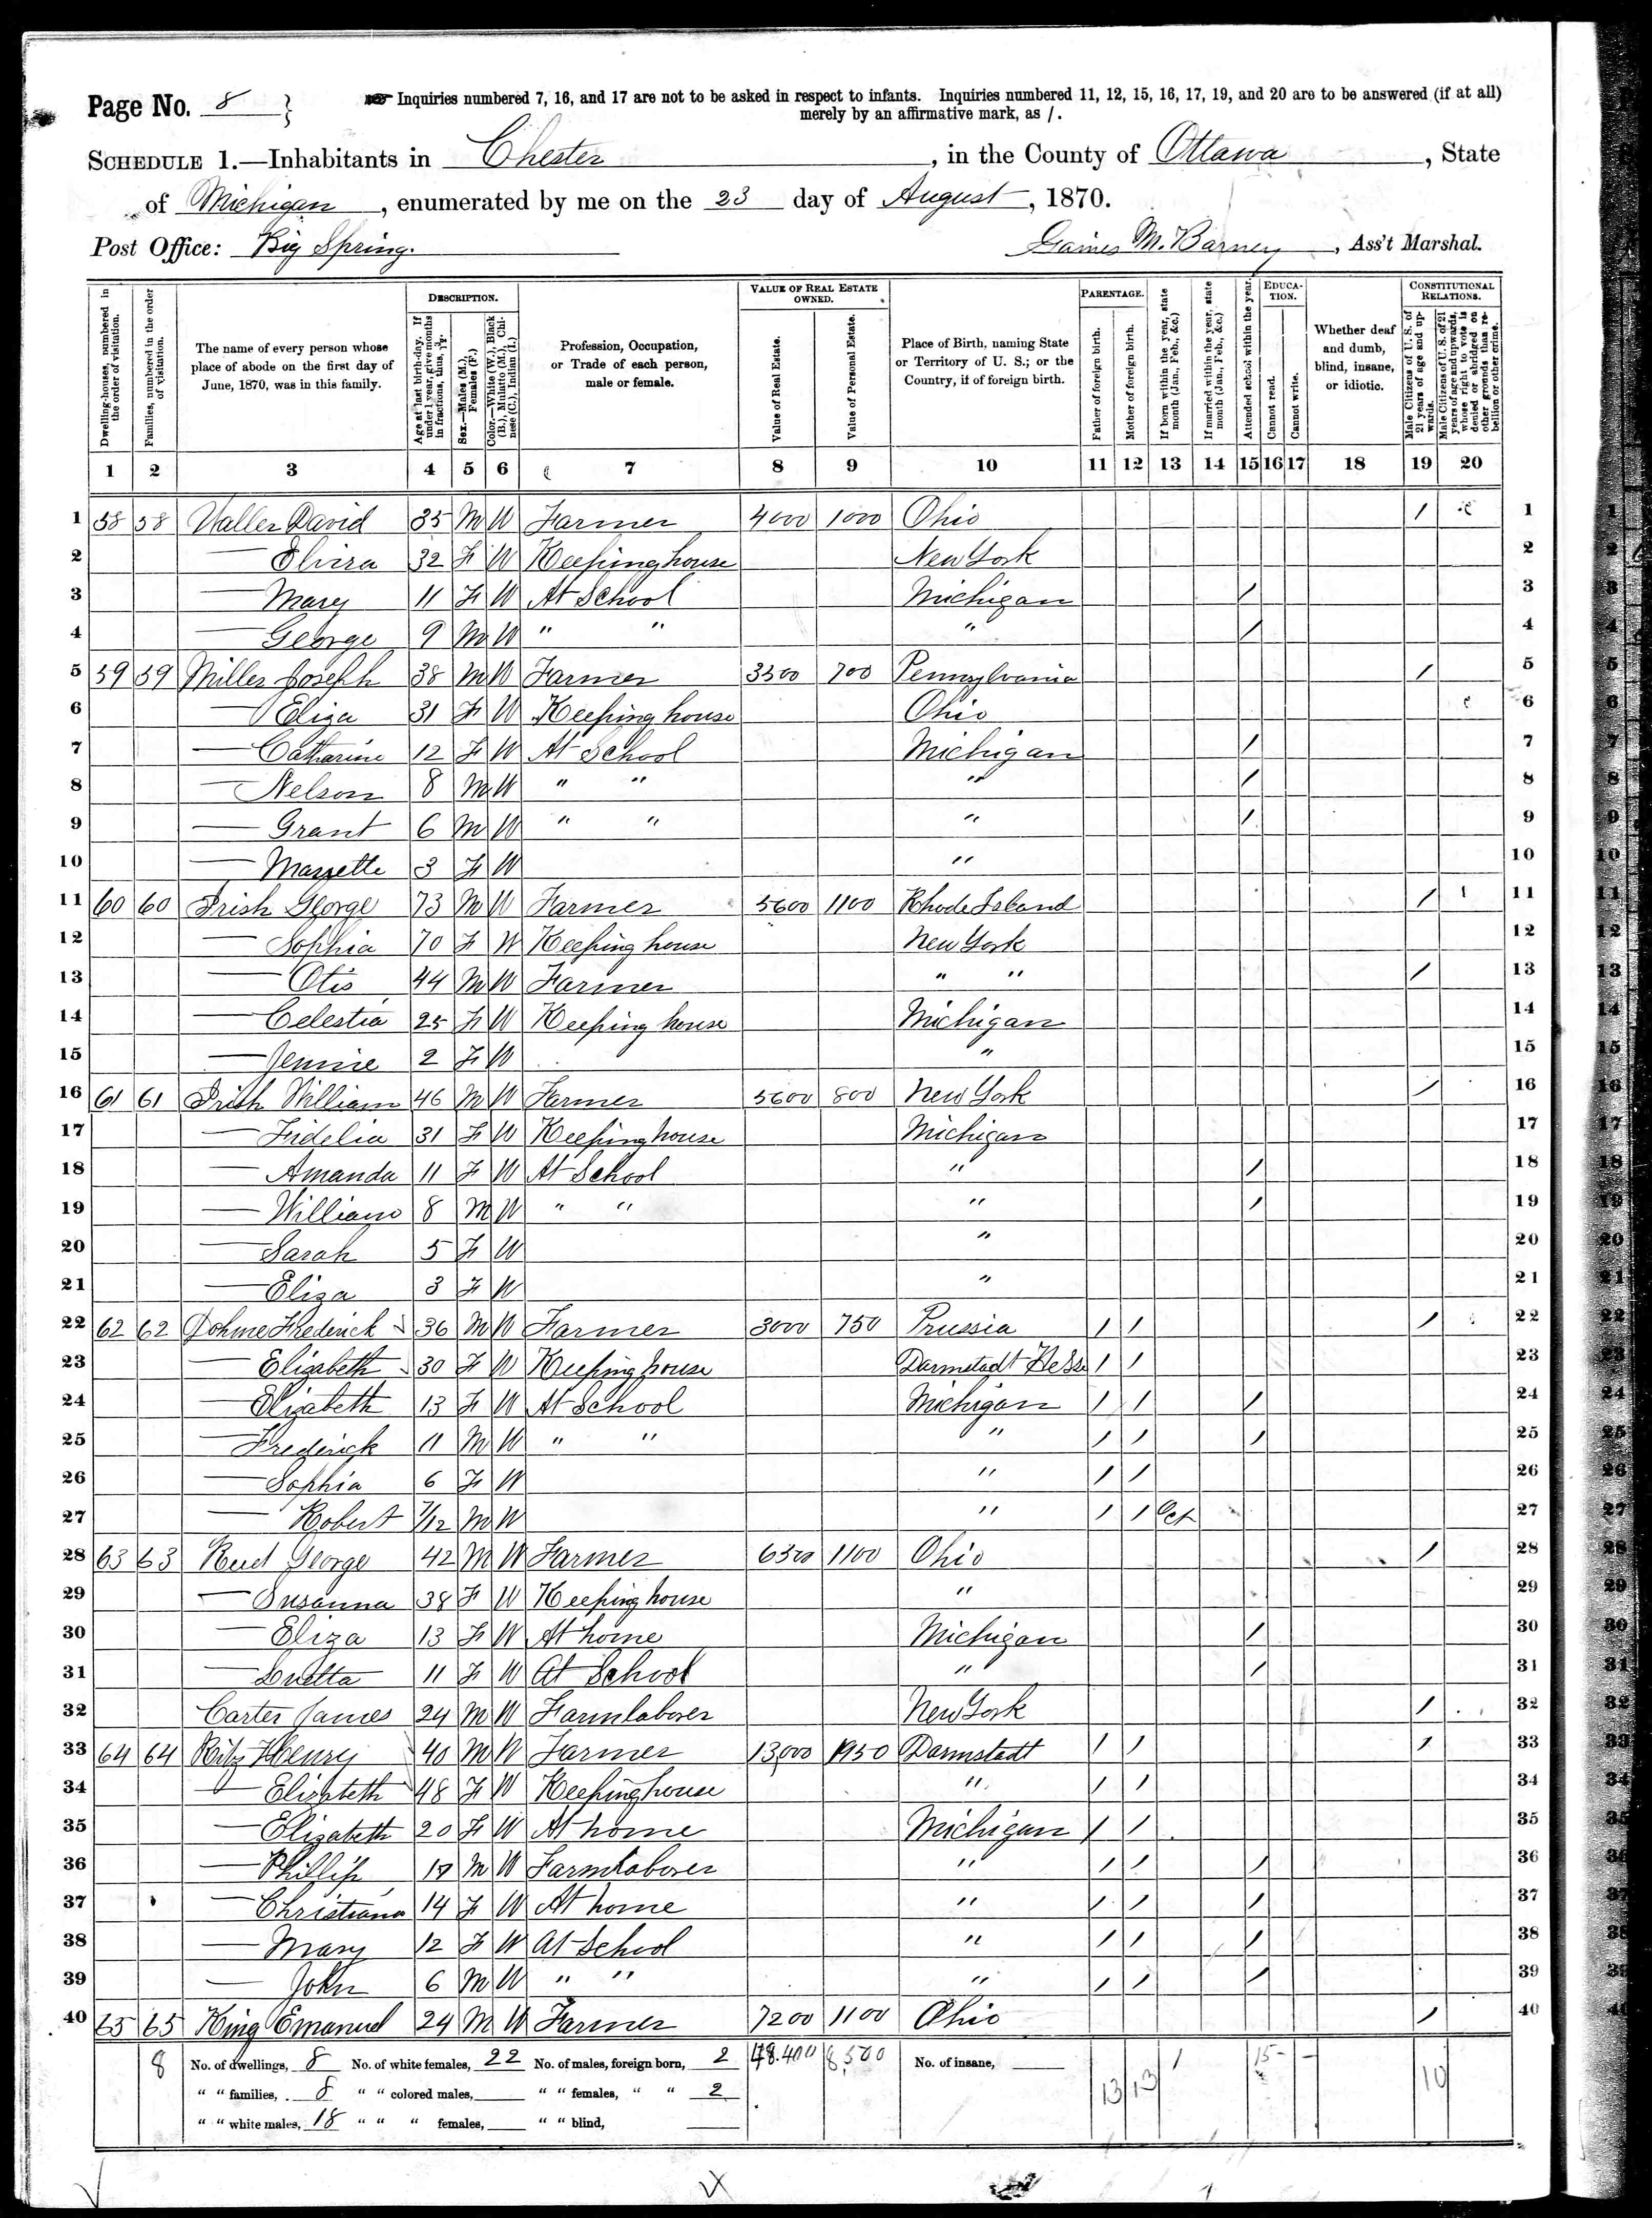 Page No. 8 }
Inquiries numbered 7, 16, and 17 are not to be asked in respect to infants. Inquiries numbered 11, 12, 15, 16, 17, 19, and 20 are to be answered (if at all)
merely by an affirmative mark, as /.
SCHEDULE 1.—Inhabitants in Chester, in the County of Ottawa, State
of Michigan, enumerated by me on the 23 day of August, 1870.
Post Office: Big Spring. M. Barney, Ass't Marshal.
Dwelling-houses, numbered in the order of visitation.
Families, numbered in the order of visitation.
The name of every person whose place of abode on the first day of June, 1870, was in this family.
DESCRIPTION.
Age at last birth-day. If under 1 year, give months in fractions, thus, 3/12.
Sex.—Males (M.), Females (F.)
Color.—White (W.), Black (B.), Mulatto (M.), Chinese (C.), Indian (I.)
Profession, Occupation, or Trade of each person, male or female.
VALUE OF REAL ESTATE OWNED.
Value of Real Estate.
Value of Personal Estate.
Place of Birth, naming State or Territory of U. S.; or the Country, if of foreign birth.
PARENTAGE.
Father of foreign birth.
Mother of foreign birth.
If born within the year, state month (Jan., Feb., &c.)
If married within the year, state month (Jan., Feb., &c.)
Attended school within the year.
EDUCATION.
Cannot read.
Cannot write.
Whether deaf and dumb, blind, insane, or idiotic.
CONSTITUTIONAL RELATIONS.
Male Citizens of U. S. of 21 years of age and upwards.
Male Citizens of U. S. of 21 years of age and upwards, whose right to vote is denied or abridged on other grounds than rebellion or other crime.
1 2 3 4 5 6 7 8 9 10 11 12 13 14 15 16 17 18 19 20
1 58 58 David 35 M W Farmer 4000 1000 Ohio / 1
2 — Elvira 32 F W Keeping house New York 2
3 — Mary 11 F W At School Michigan / 3
4 — George 9 M W " " " / 4
5 59 59 Miller Joseph 38 M W Farmer 3500 700 Pennsylvania / 5
6 — Eliza 31 F W Keeping house Ohio 6
7 — Catharine 12 F W At School Michigan / 7
8 — Nelson 8 M W " " " / 8
9 — Grant 6 M W " " " / 9
10 — 3 F W " 10
11 60 60 Irish George 73 M W Farmer 5600 1100 Rhode Island / 11
12 — Sophia 70 F W Keeping house New York 12
13 — Otis 44 M W Farmer " " / 13
14 — Celestia 25 F W Keeping house Michigan 14
15 — Jennie 2 F W " 15
16 61 61 Irish William 46 M W Farmer 5600 800 New York / 16
17 — Fidelia 31 F W Keeping house Michigan 17
18 — Amanda 11 F W At School " / 18
19 — William 8 M W " " " / 19
20 — Sarah 5 F W " 20
21 — Eliza 3 F W " 21
22 62 62 Dohme Frederick 36 M W Farmer 3000 750 Prussia / / / 22
23 — Elizabeth 30 F W Keeping house Darmstadt Hesse / / 23
24 — Elizabeth 13 F W At School Michigan / / / 24
25 — Frederick 11 M W " " " / / / 25
26 — Sophia 6 F W " / / 26
27 — Robert 7/12 M W " / / Oct 27
28 63 63 George 42 M W Farmer 6300 1100 Ohio / 28
29 — Susanna 38 F W Keeping house " 29
30 — Eliza 13 F W At home Michigan / 30
31 — Luetta 11 F W At School " / 31
32 Carter James 24 M W Farm laborer New York / 32
33 64 64 Ritz Henry 40 M W Farmer 13,000 1950 Darmstadt / / / 33
34 — Elizabeth 48 F W Keeping house " / / 34
35 — Elizabeth 20 F W At home Michigan / / 35
36 — Phillip 17 M W Farm laborer " / / / 36
37 — Christiana 14 F W At home " / / / 37
38 — Mary 12 F W At School " / / / 38
39 — John 6 M W " " " / / / 39
40 65 65 King Emanuel 24 M W Farmer 7200 1100 Ohio / 40
8 No. of dwellings, 8 No. of white females, 22 No. of males, foreign born, 2 48.400 8,500 No. of insane, 13 13 1 15 – 10
" " families, 8 " " colored males, " " females, " " 2
" " white males, 18 " " " females, " " blind,